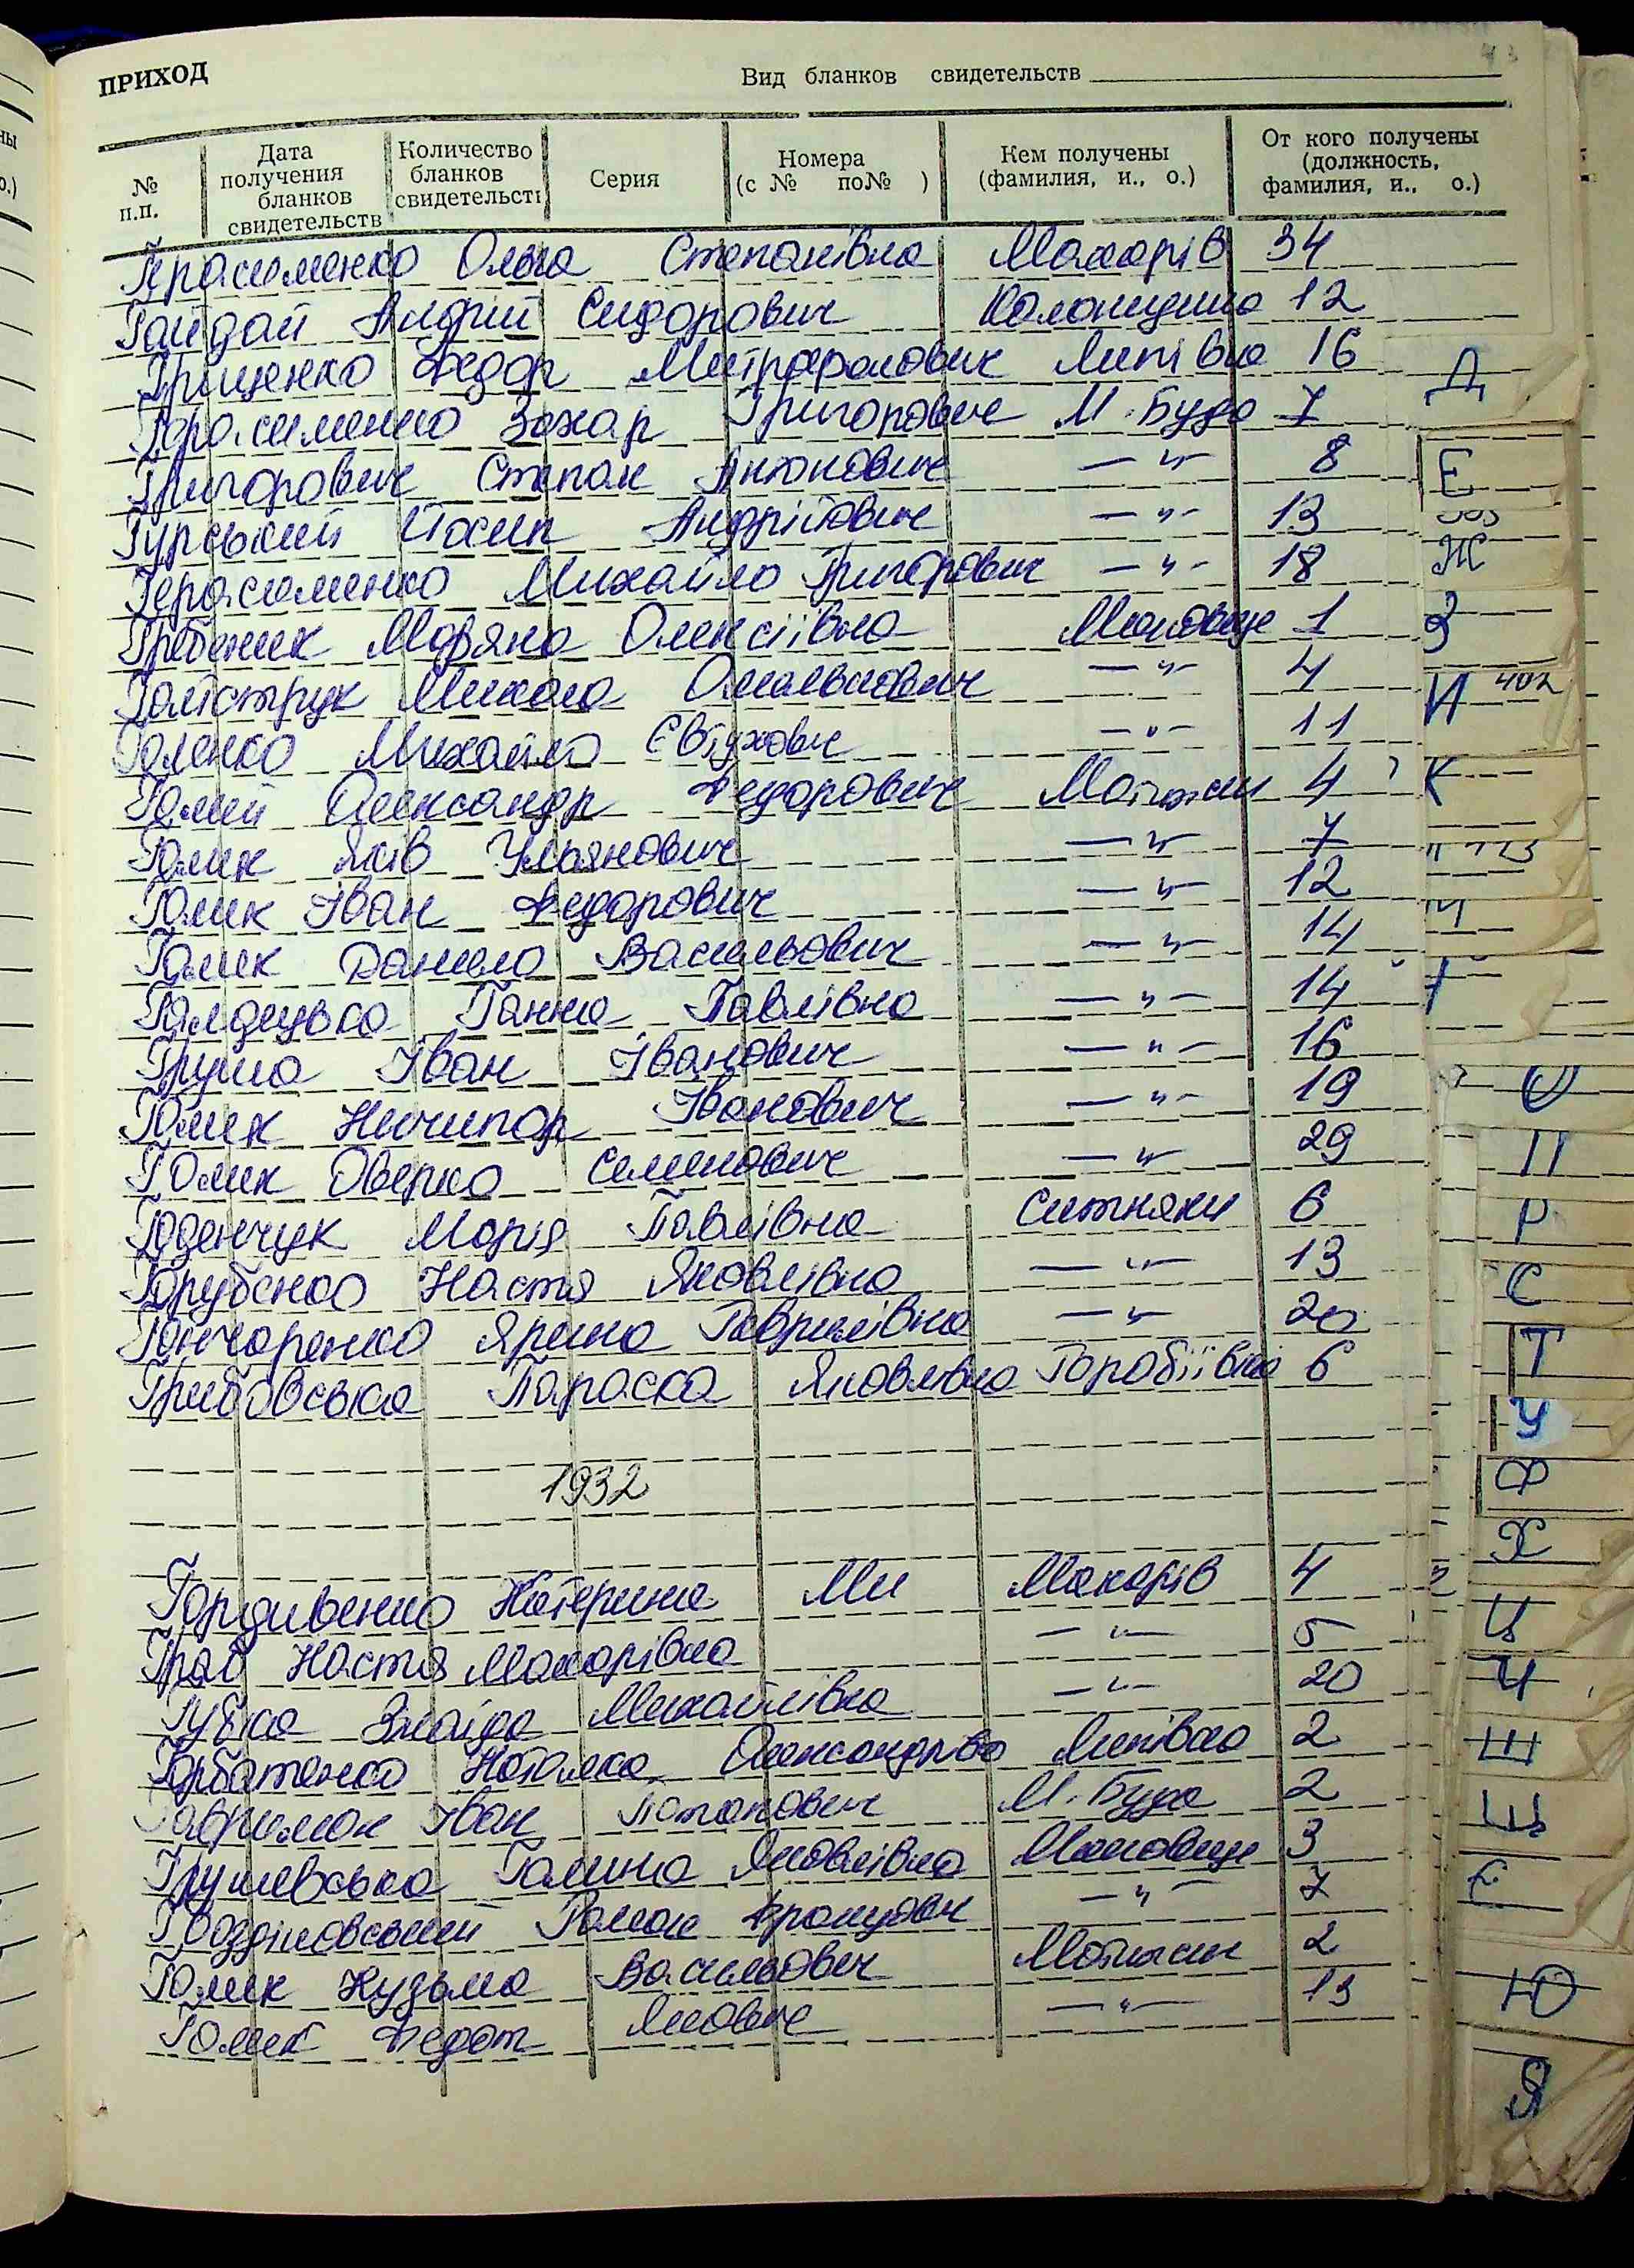 ПРИХОД
Вид бланков свидетельств
№ п.п.
Дата получения бланков свидетельств
Количество бланков свидетельств
Серия
Номера (с № по № )
Кем получены (фамилия, и., о.)
От кого получены (должность, фамилия, и., о.)
Герасименко Ольга Степанівна Макарів 34
Гайдай Андрій Сидорович Колонщина 12
Грищенко Федор Митрофанович Липівка 16
Герасименко Захар Григорович М. Буда 7
Григорович Степан Антонович —"— 8
Гурський Йосип Андрійович —"— 13
Герасименко Михайло Григорович —"— 18
Гребеник Мар'яна Олексіївна Маковище 1
Микола —"— 4
Михайло Євтухович —"— 11
Голик Олександр Федорович Мотижин 4
Голик Яків Улянович —"— 7
Голик Іван Федорович —"— 12
Голик Данило Васильович —"— 14
Ганна Павлівна —"— 14
Груша Іван Іванович —"— 16
Голик Ничипор Іванович —"— 19
Голик Оверко Семенович —"— 29
Марія Павлівна Ситняки 6
Настя Яковлівна —"— 13
Гончаренко Ярина Гаврилівна —"— 20
Грибовська Параска Яковлівна Горобіївка 6
1932
Гордиенко Катерина Ми Макарів 4
Граб Настя Макарівна —"— 5
Губка Зінаїда Михайлівна —"— 20
Горбатенко Наталка Олександрівна Липівка 2
Гаврилюк Іван Потапович М. Буда 2
Грушевська Галина Яковлівна Маковище 3
Роман —"— 7
Голик Кузьма Васильович Мотижин 2
Голик Федот Якович —"— 13
Д
Е
Ж
З
И 402
К
О
П
Р
С
Т
У
Ф
Х
Ц
Ч
Ш
Щ
Є
Ю
Я